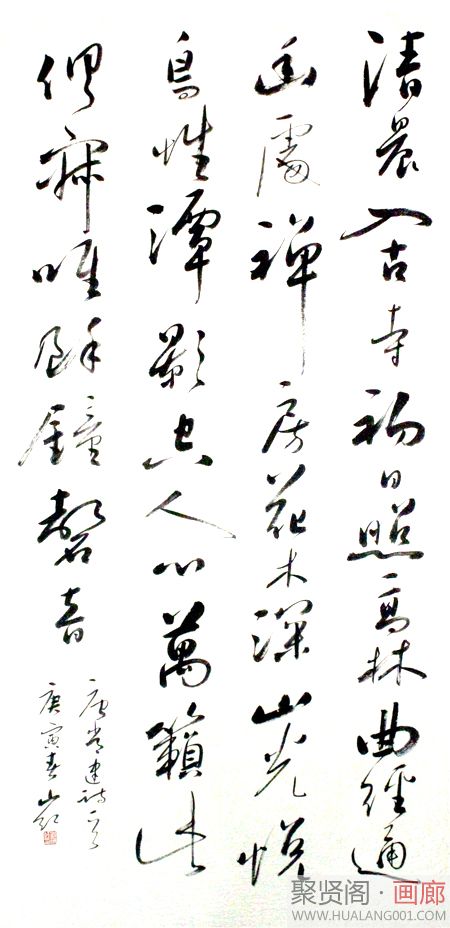 清晨入古寺初日照高林曲徑通
幽處禪房花木深山光悅
鳥性潭影空人心萬籟此
俱寂唯餘鐘磬音
唐常建詩一首
庚寅春山紅
聚贤阁·画廊
WWW.HUALANG001.COM